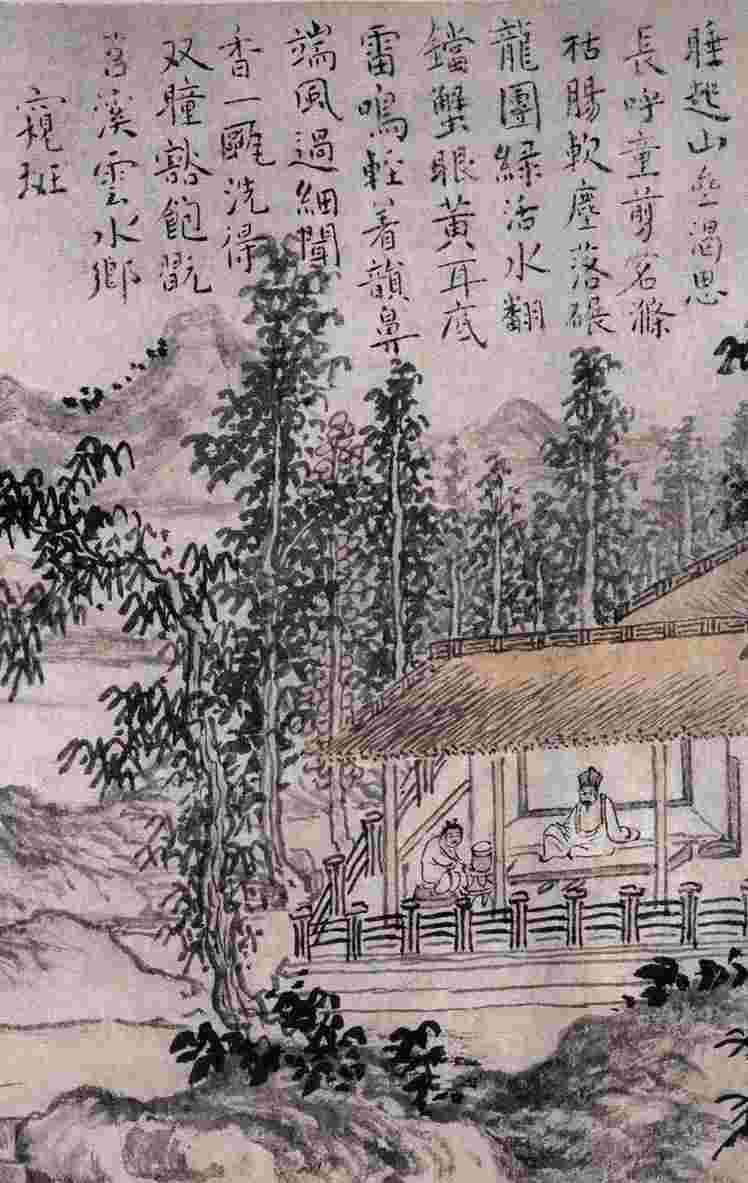 睡起山亝渴思
長呼童剪茗滌
枯腸軟塵落碾
龍團緑活水翻
鐺蟹眼黃耳底
雷鳴輕着韻鼻
端風過細聞
香一甌洗得
双瞳豁飽翫
苕溪雲水鄉
窺班